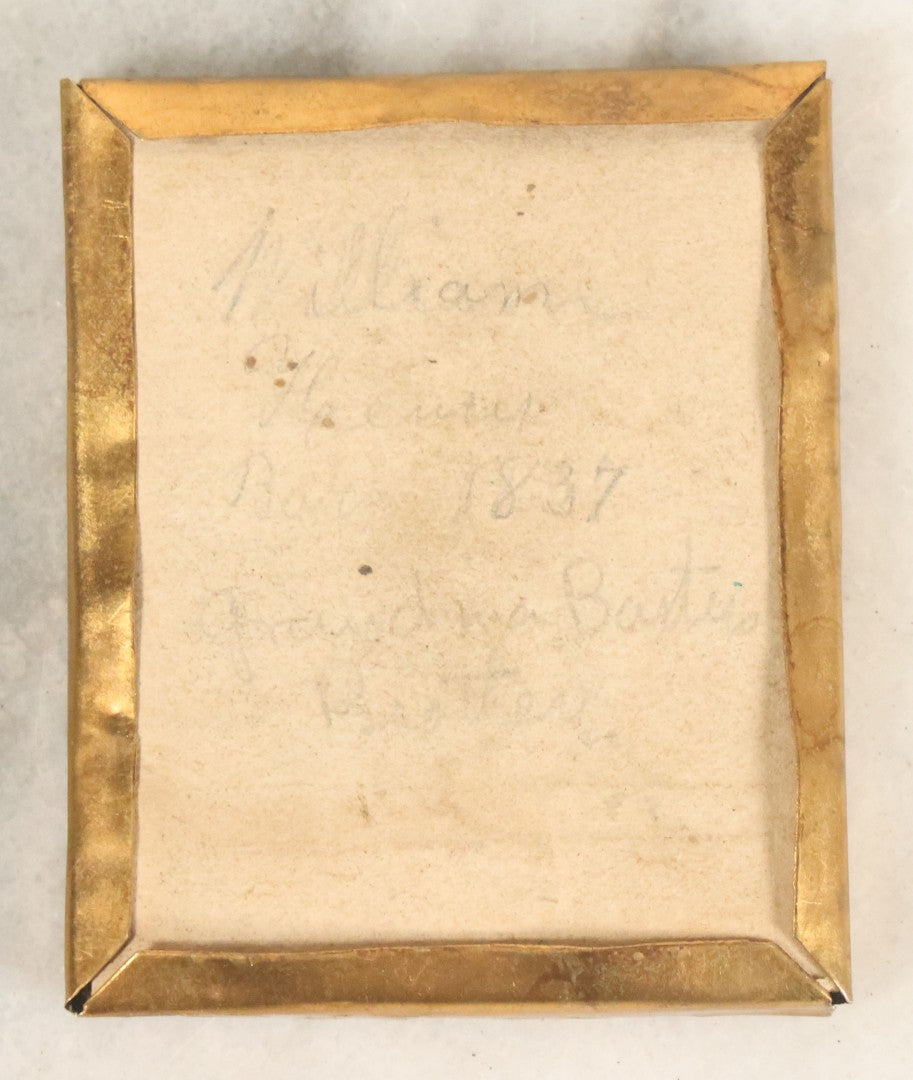 William
Henry
Born 1837
Grandma
Brother